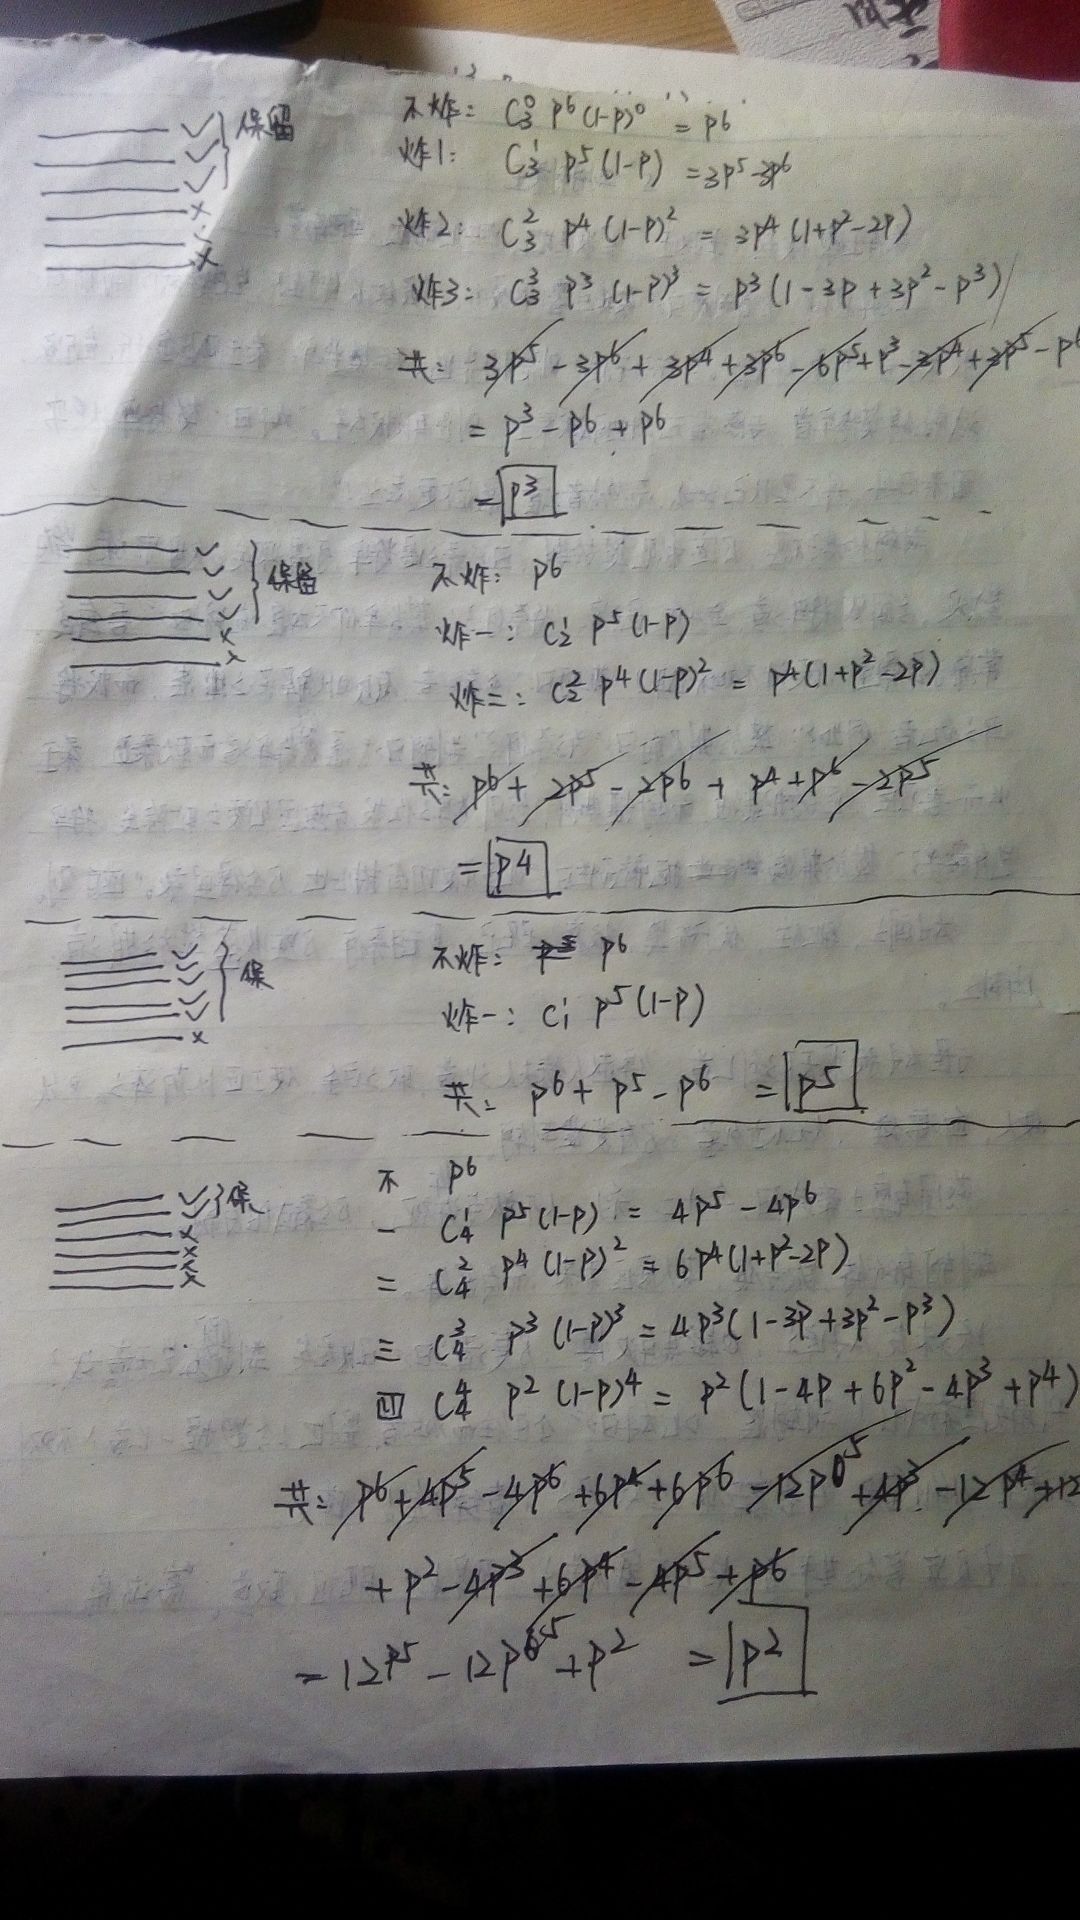 保留
不炸: C₃⁰ p⁶(1-p)⁰ = p⁶
炸1: C₃¹ p⁵(1-p) = 3p⁵-3p⁶
炸2: C₃² p⁴(1-p)² = 3p⁴(1+p²-2p)
炸3: C₃³ p³(1-p)³ = p³(1-3p+3p²-p³)
共: 3p⁵-3p⁶+3p⁴+3p⁶-6p⁵+p³-3p⁴+3p⁵-p⁶
= p³-p⁶+p⁶
= p³
保留
不炸: p⁶
炸一: C₂¹ p⁵(1-p)
炸二: C₂² p⁴(1-p)² = p⁴(1+p²-2p)
共: p⁶+2p⁵-2p⁶+p⁴+p⁶-2p⁵
= p⁴
保
不炸: p⁶
炸一: C₁¹ p⁵(1-p)
共: p⁶+p⁵-p⁶ = p⁵
保
不 p⁶
一 C₄¹ p⁵(1-p) = 4p⁵-4p⁶
二 C₄² p⁴(1-p)² = 6p⁴(1+p²-2p)
三 C₄³ p³(1-p)³ = 4p³(1-3p+3p²-p³)
四 C₄⁴ p²(1-p)⁴ = p²(1-4p+6p²-4p³+p⁴)
共: p⁶+4p⁵-4p⁶+6p⁴+6p⁶-12p⁵+4p³-12p⁴+12
+p²-4p³+6p⁴-4p⁵+p⁶
= 12p⁵-12p⁵+p² = p²